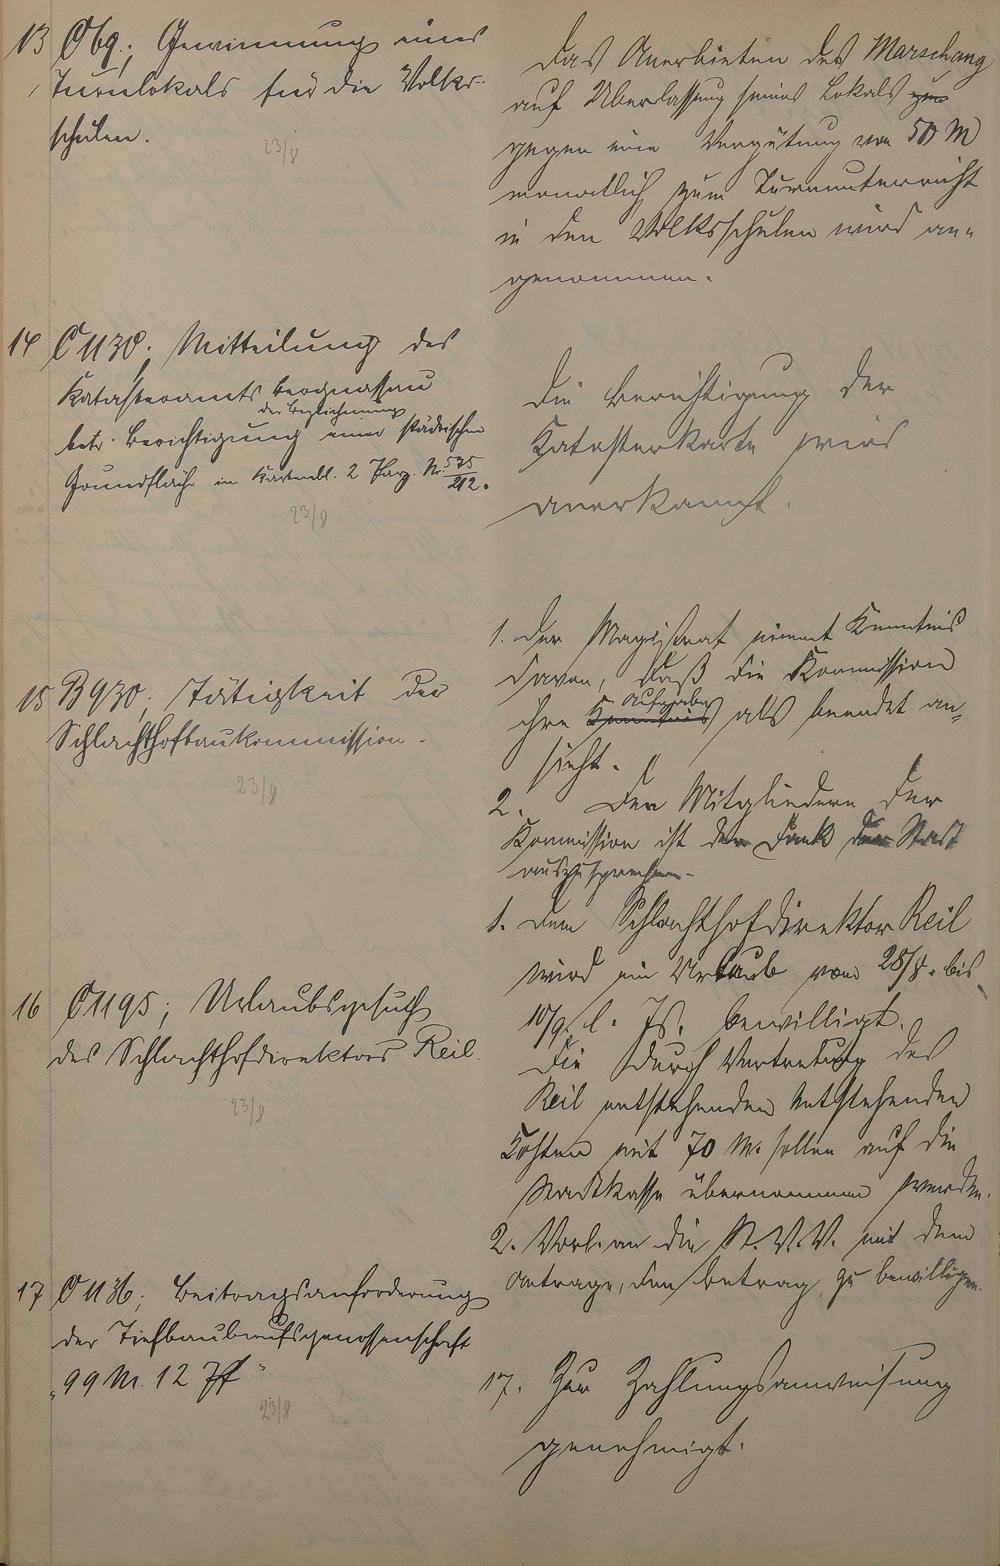 13 Obg.; Gewinnung eines
Turnlokals für die Volks-
schulen.
23/8
Das Anerbieten des Marschang
auf Überlassung seines Lokals zum
gegen eine Vergütung von 50 M
monatlich zum Turnunterricht
in den Volksschulen wird an-
genommen.
14 C 1130; Mitteilung des
Katasteramts
der Bezeichnung
betr. Berichtigung einer städtischen
Grundfläche im Kartenbl. 2 Parz. Nr. 535/212.
23/8
Die Berichtigung der
Katasterkarte wird
anerkannt.
15 B 930; Tätigkeit der
Schlachthofbaukommission.
23/8
1. Der Magistrat nimmt Kenntnis
davon, daß die Kommission
Aufgabe
ihre Kenntnis als beendet an-
sieht.
2. Den Mitgliedern der
Kommission ist der Dank der Stadt
auszusprechen.
16 C 1195; Urlaubsgesuch
des Schlachthofdirektors Reil.
23/8
1. Dem Schlachthofdirektor Reil
wird ein Urlaub vom 28/8. bis
10/9. l. Js. bewilligt.
Die durch Vertretung des
Reil entstehenden entstehenden
Kosten mit 70 M. sollen auf die
Stadtkasse übernommen werden.
2. Vorl. an die St. V. V. mit dem
Antrage, den Betrag zu bewilligen.
17 C 1136; Beitragsanforderung
der Tiefbauberufsgenossenschaft
"99 M. 12 Pf"
23/8
17. Zur Zahlungsanweisung
genehmigt.